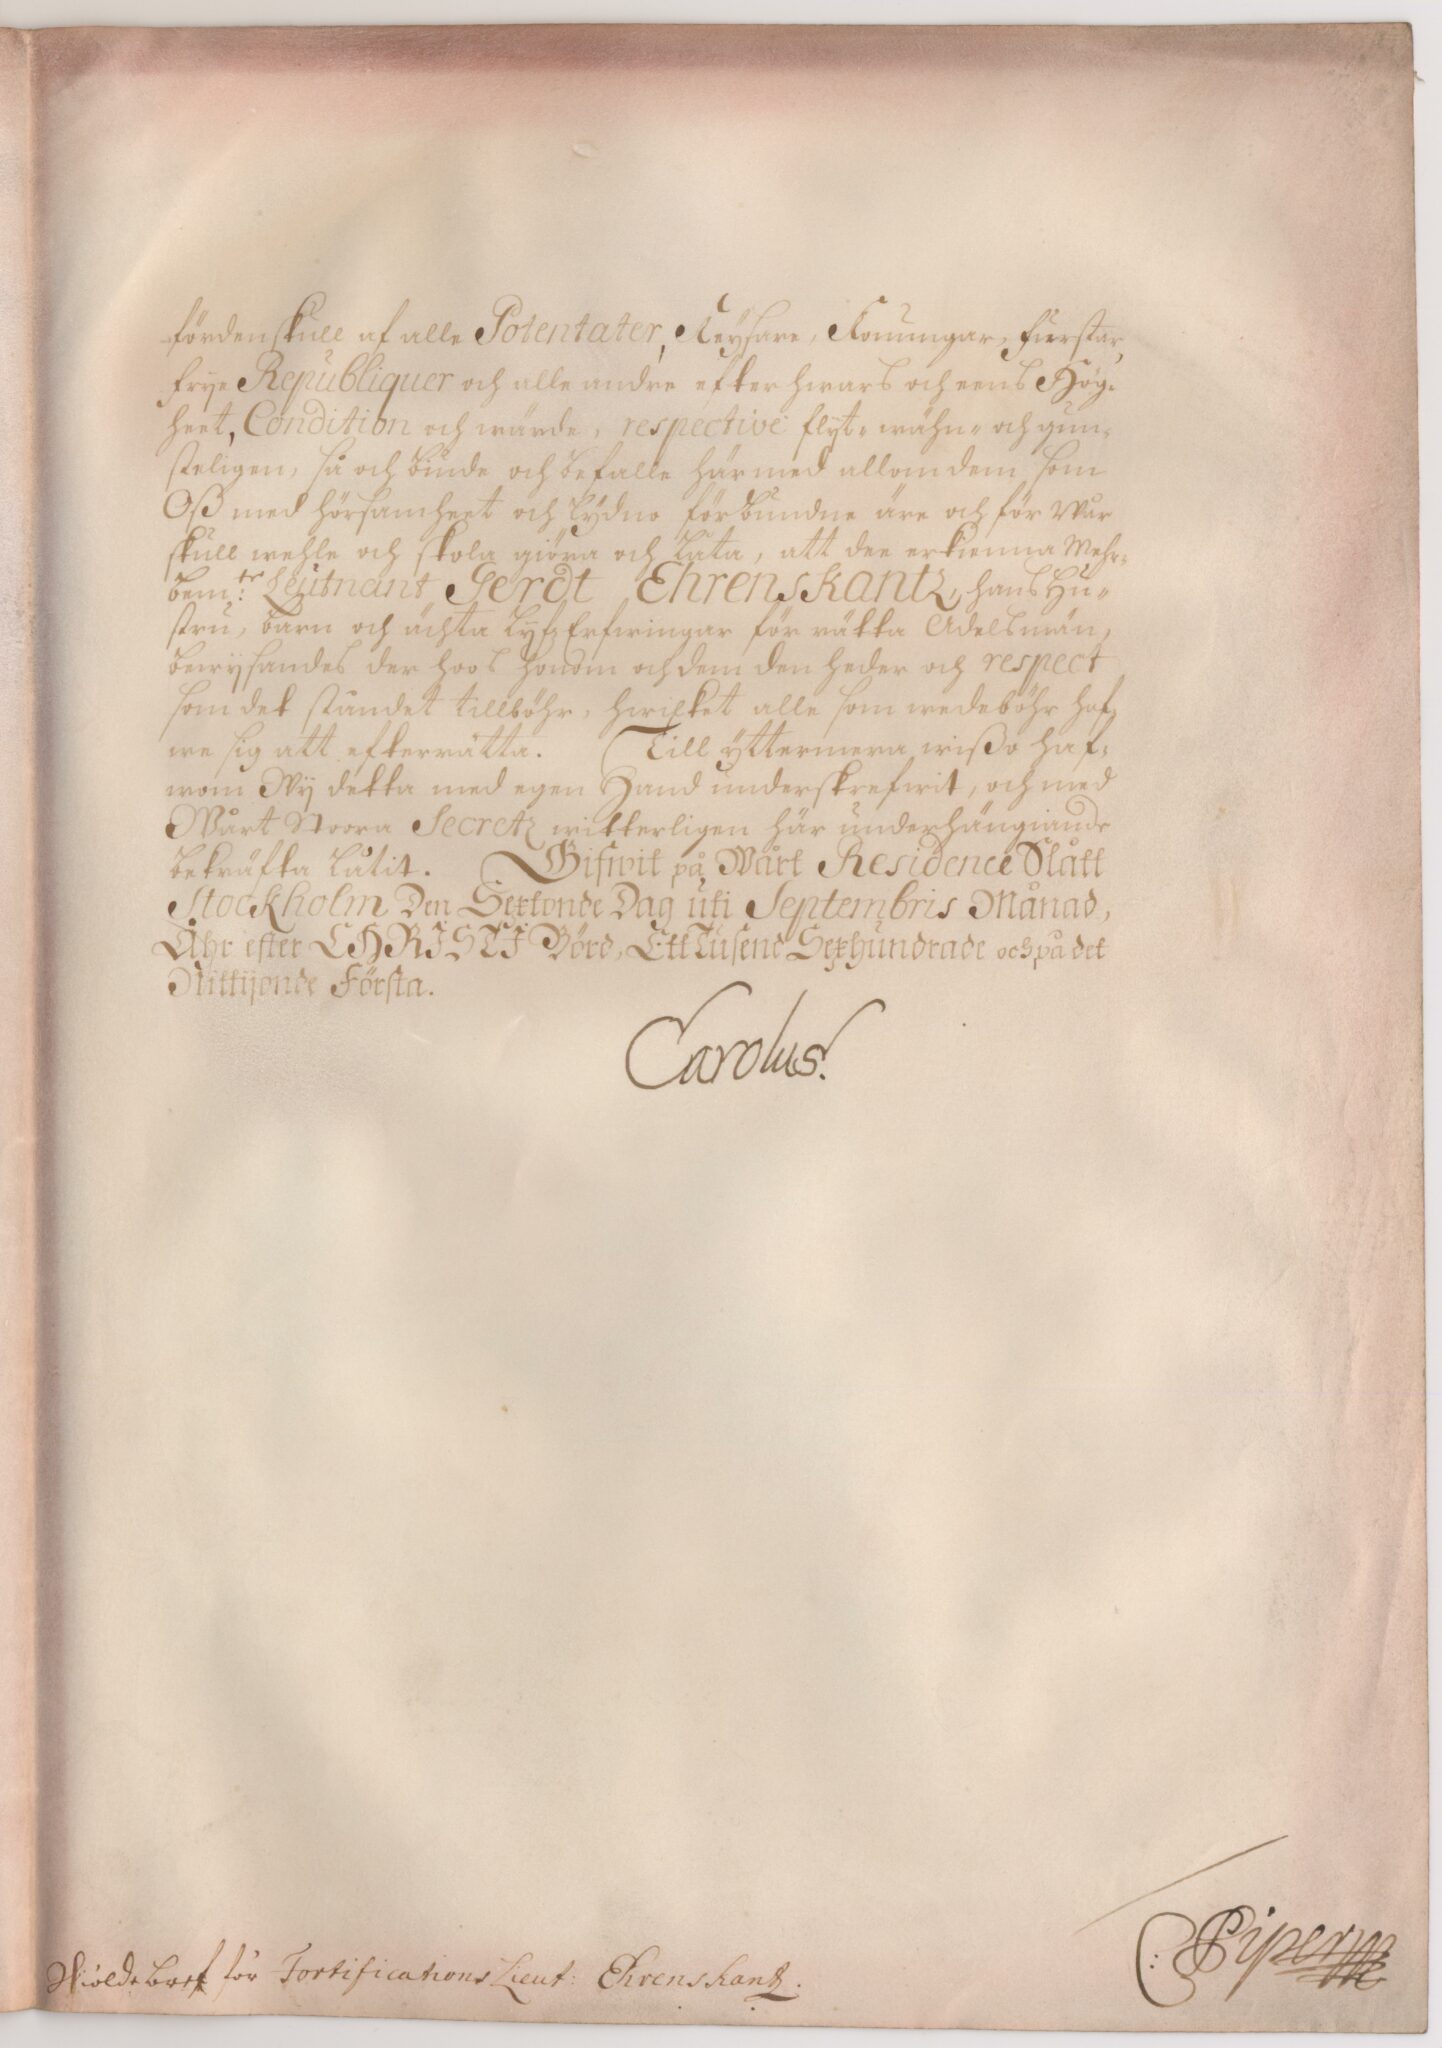 fördenskull af alle Potentater, Keÿsare, Konungar, Fürstar,
frÿe Republiquer och alle andre efter hwars och eens Hög-
heet, Condition och wärde, respective flÿt- wähn- och gun-
steligen, så och biude och befalle här med allom dem som
Oß med hörsamheet och lÿdno förbundne äre och för wår
skull wehle och skola giöra och låta, att dee erkienna Mehr-
bem:te Leutnant Gerdt Ehrenskantz, hans Hu-
stru, barn och ächta Lÿfz Erfwingar för rätta Adelsmän,
bewÿsandes der hoos honom och dem den heder och respect
som det ståndet tillböhr, hwilket alle som wedeböhr haf-
we sig att efterrätta. Till ÿttermera wißo haf-
wom Wÿ detta med egen Hand underskrefwit, och med
Wårt Stoora Secretz witterligen här underhängiande
bekräfta låtit. Gifwit på Wårt Residence Slått
Stockholm Den Sextonde Dag uti Septembris Månad,
Åhr efter CHRISTI Börd, Ett Tusend Sexhundrade och på det
Nittijonde Första.
Carolus.
C: Piper
Skiölde bref för Fortifications Lieut: Ehrenskantz.